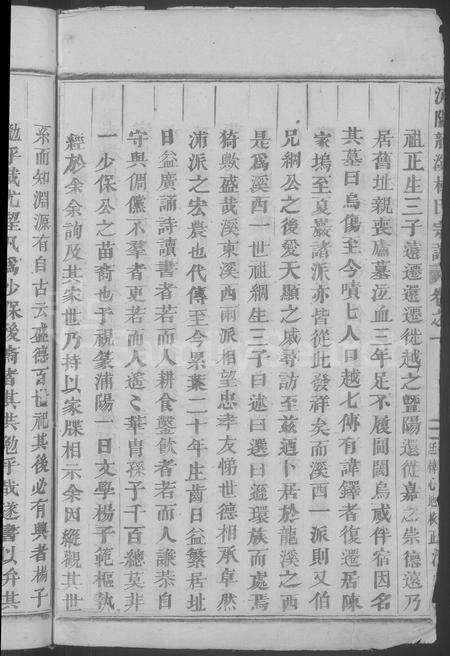 浦陽龍溪楊氏宗譜卷之一
祖正生三子遠還遷遷徙越之暨陽還從嘉之崇德遠乃
居舊址親喪廬墓泣血三年足不履閫閾烏戒伴宿因名
其墓曰烏傷至今噴七人口越七傳有諱鐸者復遷居陳
家塢至夏巖諸派亦皆從此發祥矣而溪西一派則又伯
兄綱公之後愛天顯之戚尋訪至茲迺卜居於龍溪之西
是為溪西一世祖綱生三子曰述曰選曰遜環族而處焉
猗歟盛哉溪東溪西兩派相望忠孝友悌世德相承卓然
浦派之宏農也代傳至今果葉二十年生齒日益繁居址
日益廣誦詩讀書者若而人耕食鑿飲者若而人謙恭自
守與倜儻不羣者更若而人遙遙華胄孫子千百總莫非
一少保公之苗裔也予視篆浦陽一日文學楊子範樞執
經於余余詢及其家世乃持以家牒相示余因縱觀其世
系而知淵源有自古云盛德百世祀其後必有興者楊子
勉乎哉尤望凡為少保後裔者其共勉乎哉遂書以弁其